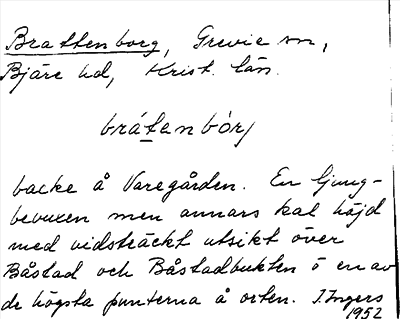 Brattenborg, Grevie sn,
Bjäre hd, Krist. län.
bråtenbórj
backe å Varegården. En ljung-
bevuxen men annars kal höjd
med vidsträckt utsikt över
Båstad och Båstadbukten o en av
de högsta punterna å orten. I. Ingers
1952